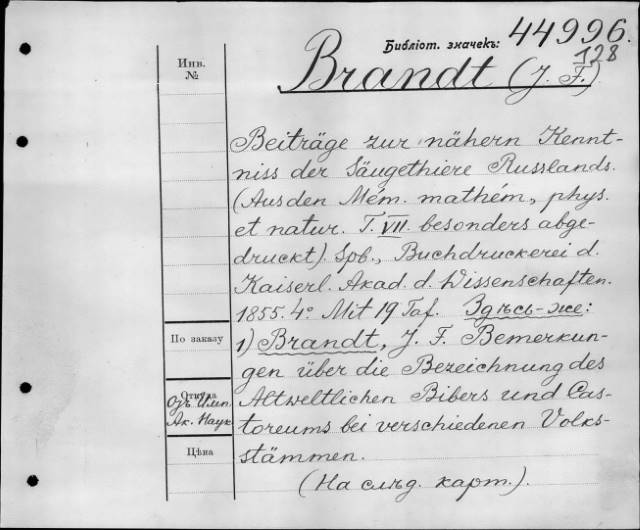 Библіот. значекъ: 44996.
128
Brandt (J. F.)
Инв.
№
Beiträge zur nähern Kennt-
niss der Säugethiere Russlands.
(Aus den Mém. mathém., phys.
et natur. T. VII. besonders abge-
druckt). Spb., Buchdruckerei d.
Kaiserl. Akad. d. Wissenschaften.
1855. 4º Mit 19 Taf. Здѣсь-же:
1) Brandt, J. F. Bemerkun-
gen über die Bezeichnung des
Altweltlichen Bibers und Cas-
toreums bei verschiedenen Volks-
stämmen.
(На слѣд. карт.).
По заказу
Откуда
Отъ Имп.
Ак. Наук
Цѣна